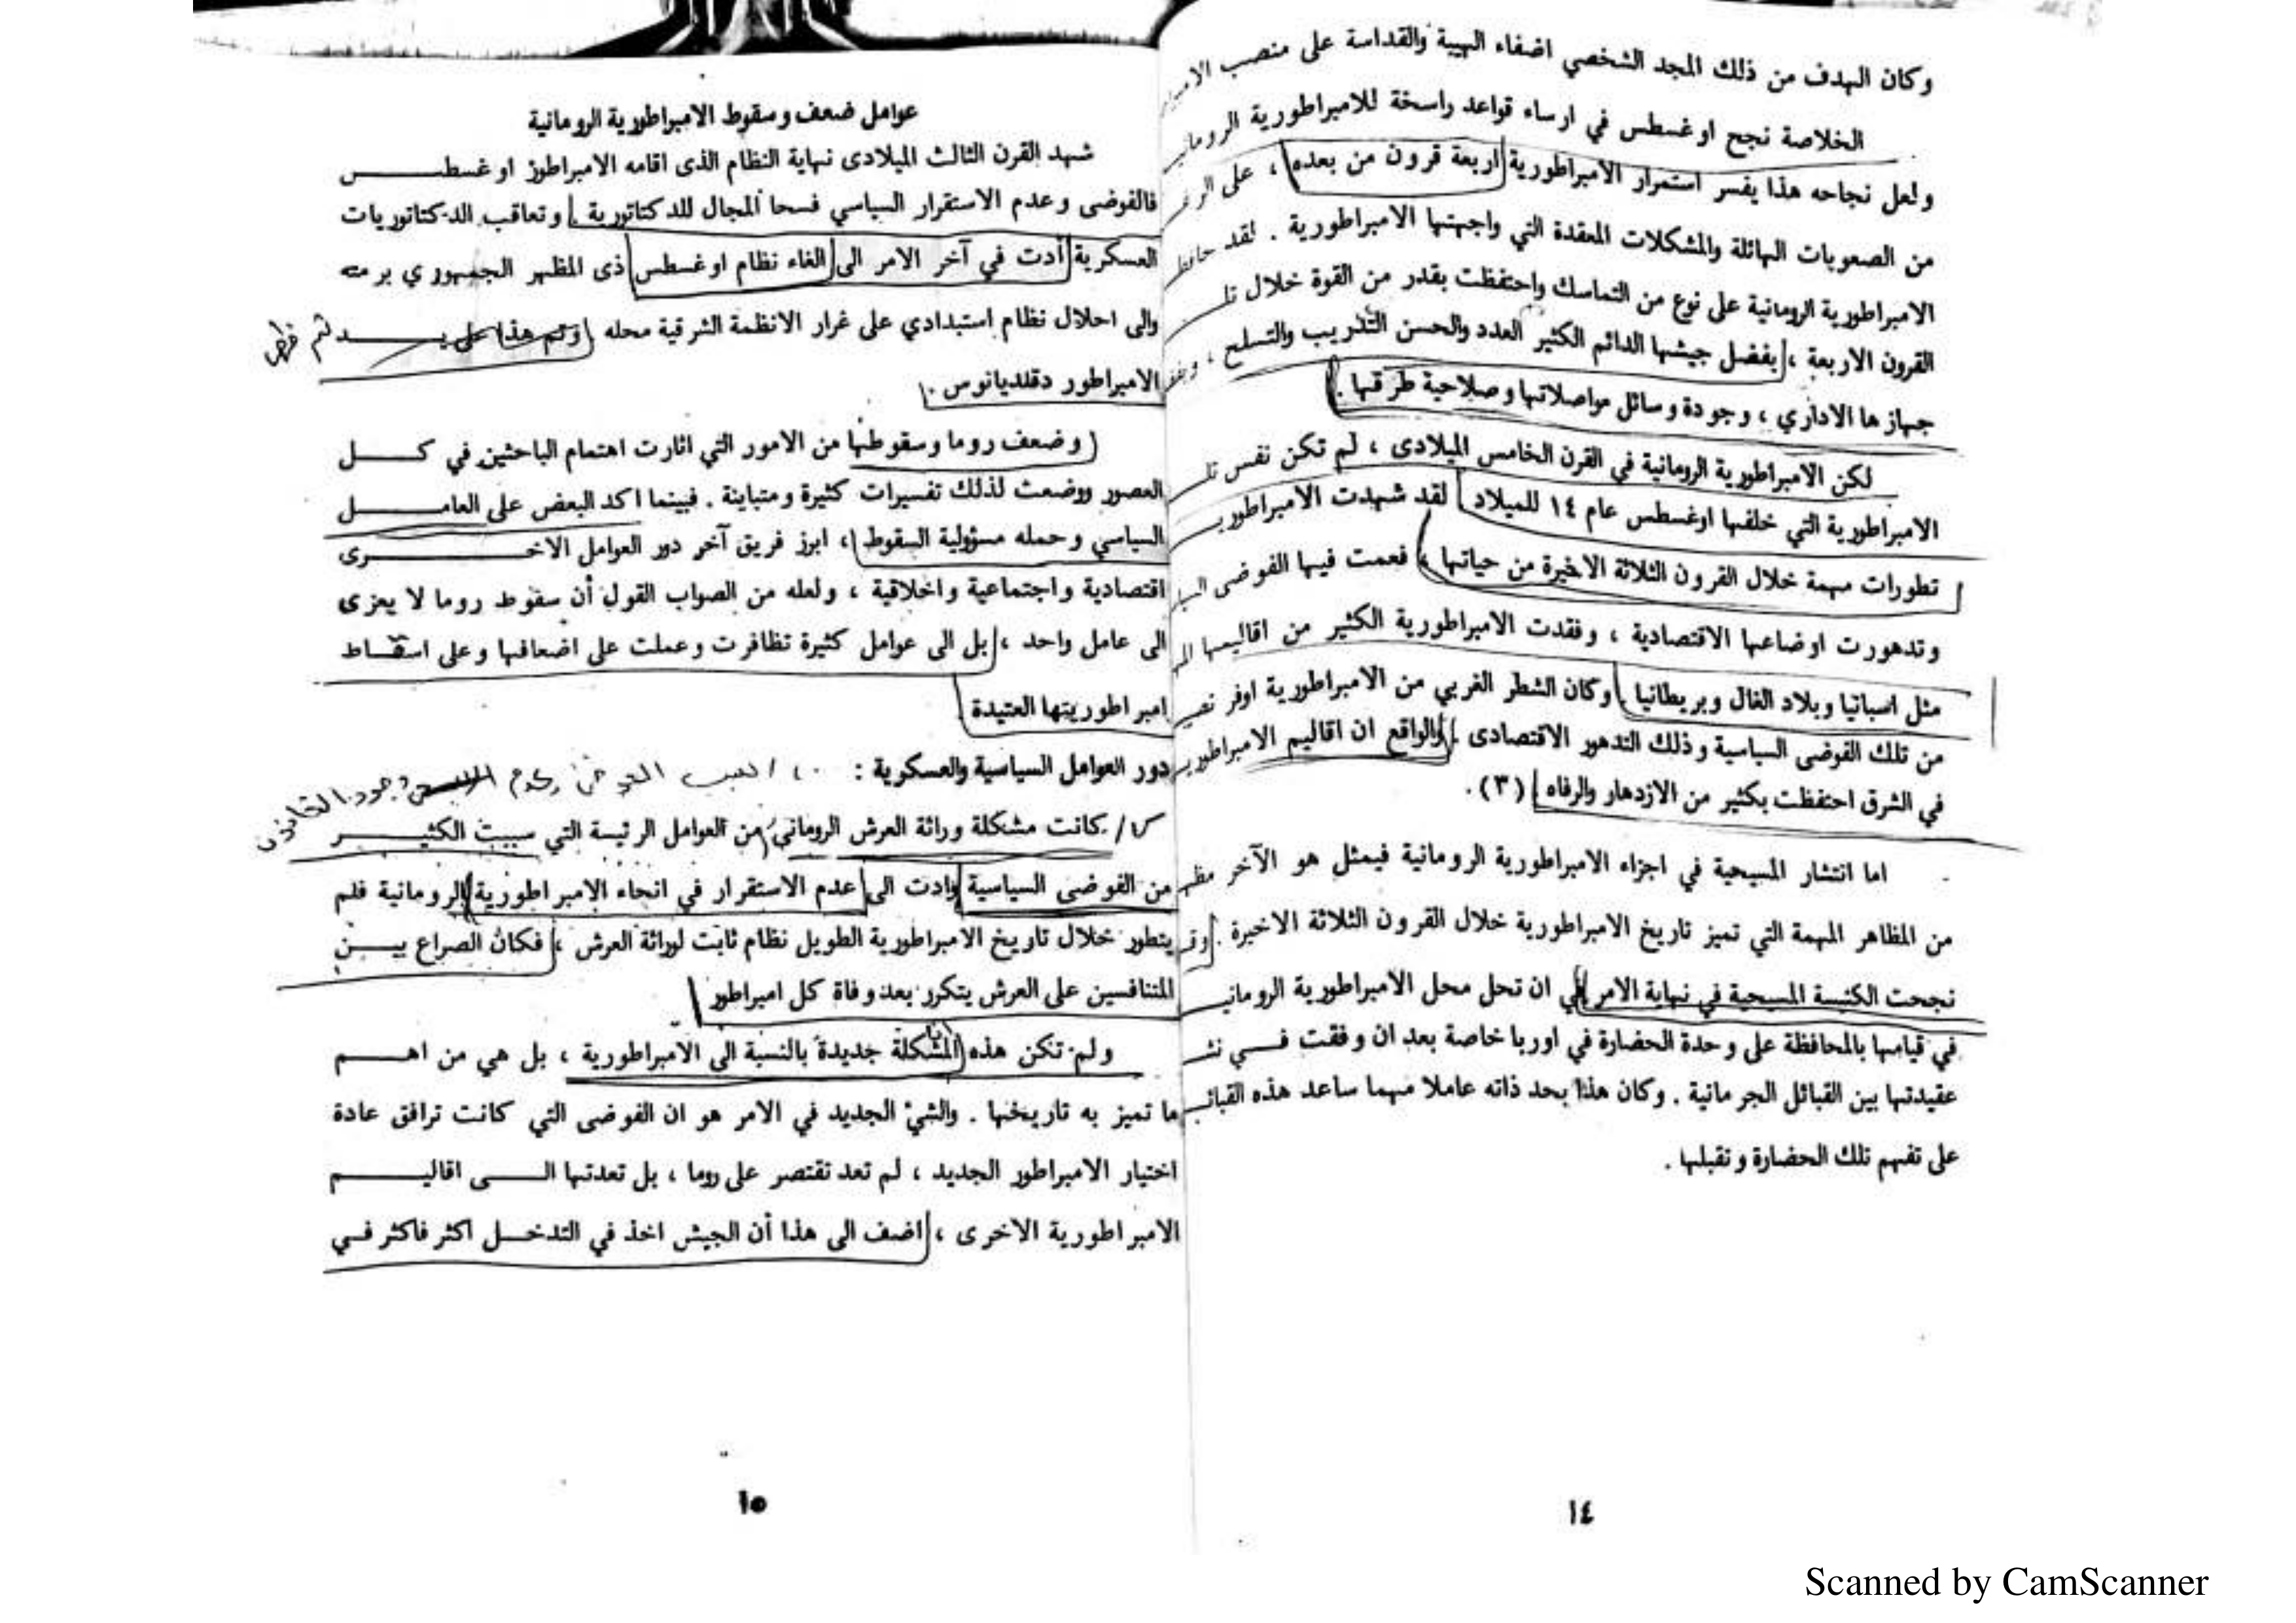 وكان الهدف من ذلك المجد الشخصي اضفاء الهيبة والقداسة على منصب
الخلاصة نجح اوغسطس في ارساء قواعد راسخة للامبراطورية
ولعل نجاحه هذا يفسر استمرار الامبراطورية اربعة قرون من بعده ، على
من الصعوبات الهائلة والمشكلات المعقدة التي واجهتها الامبراطورية . لقد
الامبراطورية الرومانية على نوع من التماسك واحتفظت بقدر من القوة خلال
القرون الاربعة ، بفضل جيشها الدائم الكثير العدد والحسن التدريب والتسلح ،
جهازها الاداري ، وجودة وسائل مواصلاتها وصلاحية طرقها .
لكن الامبراطورية الرومانية في القرن الخامس الميلادى ، لم تكن نفس
الامبراطورية التي خلفها اوغسطس عام ١٤ للميلاد لقد شهدت
تطورات مهمة خلال القرون الثلاثة الاخيرة من حياتها ، فعمت فيها الفوضى
وتدهورت اوضاعها الاقتصادية ، وفقدت الامبراطورية الكثير من اقاليمها
مثل اسبانيا وبلاد الغال وبريطانيا . وكان الشطر الغربي من الامبراطورية اوفر
من تلك الفوضى السياسية وذلك التدهور الاقتصادى . والواقع ان اقاليم
في الشرق احتفظت بكثير من الازدهار والرفاه (٣) .
اما انتشار المسيحية في اجزاء الامبراطورية الرومانية فيمثل هو الآخر
من المظاهر المهمة التي تميز تاريخ الامبراطورية خلال القرون الثلاثة الاخيرة .
نجحت الكنيسة المسيحية في نهاية الامر في ان تحل محل الامبراطورية
في قيامها بالمحافظة على وحدة الحضارة في اوربا خاصة بعد ان وفقت فـــي
عقيدتها بين القبائل الجرمانية . وكان هذا بحد ذاته عاملا مهما ساعد هذه
على تفهم تلك الحضارة وتقبلها .
١٤
عوامل ضعف وسقوط الامبراطورية الرومانية
شهد القرن الثالث الميلادى نهاية النظام الذى اقامه الامبراطور اوغسطـــــس
فالفوضى وعدم الاستقرار السياسي فسحا المجال للدكتاتورية وتعاقب الدكتاتوريات
العسكرية أدت في آخر الامر الى الغاء نظام اوغسطس ذى المظهر الجمهوري برمته
والى احلال نظام استبدادي على غرار الانظمة الشرقية محله وتم هذا على يـــــد
الامبراطور دقلديانوس .
وضعف روما وسقوطها من الامور التي اثارت اهتمام الباحثين في كـــــل
العصور ووضعت لذلك تفسيرات كثيرة ومتباينة . فبينما اكد البعض على العامـــــل
السياسي وحمله مسؤولية السقوط ، ابرز فريق آخر دور العوامل الاخـــــرى
اقتصادية واجتماعية واخلاقية ، ولعله من الصواب القول أن سقوط روما لا يعزى
الى عامل واحد ، بل الى عوامل كثيرة تظافرت وعملت على اضعافها وعلى اسقـــاط
امبراطوريتها العتيدة
دور العوامل السياسية والعسكرية :
كانت مشكلة وراثة العرش الروماني من العوامل الرئيسة التي سببت الكثيـــــر
من الفوضى السياسية وادت الى عدم الاستقرار في انحاء الامبراطورية الرومانية فلم
يتطور خلال تاريخ الامبراطورية الطويل نظام ثابت لوراثة العرش ، فكان الصراع بيـــن
المتنافسين على العرش يتكرر بعد وفاة كل امبراطور
ولم تكن هذه المشكلة جديدة بالنسبة الى الامبراطورية ، بل هي من اهـــــم
ما تميز به تاريخها . والشيْ الجديد في الامر هو ان الفوضى التي كانت ترافق عادة
اختيار الامبراطور الجديد ، لم تعد تقتصر على روما ، بل تعدتها الـــــى اقاليـــــم
الامبراطورية الاخرى ، اضف الى هذا أن الجيش اخذ في التدخـــل اكثر فاكثر فـــي
١٥
Scanned by CamScanner